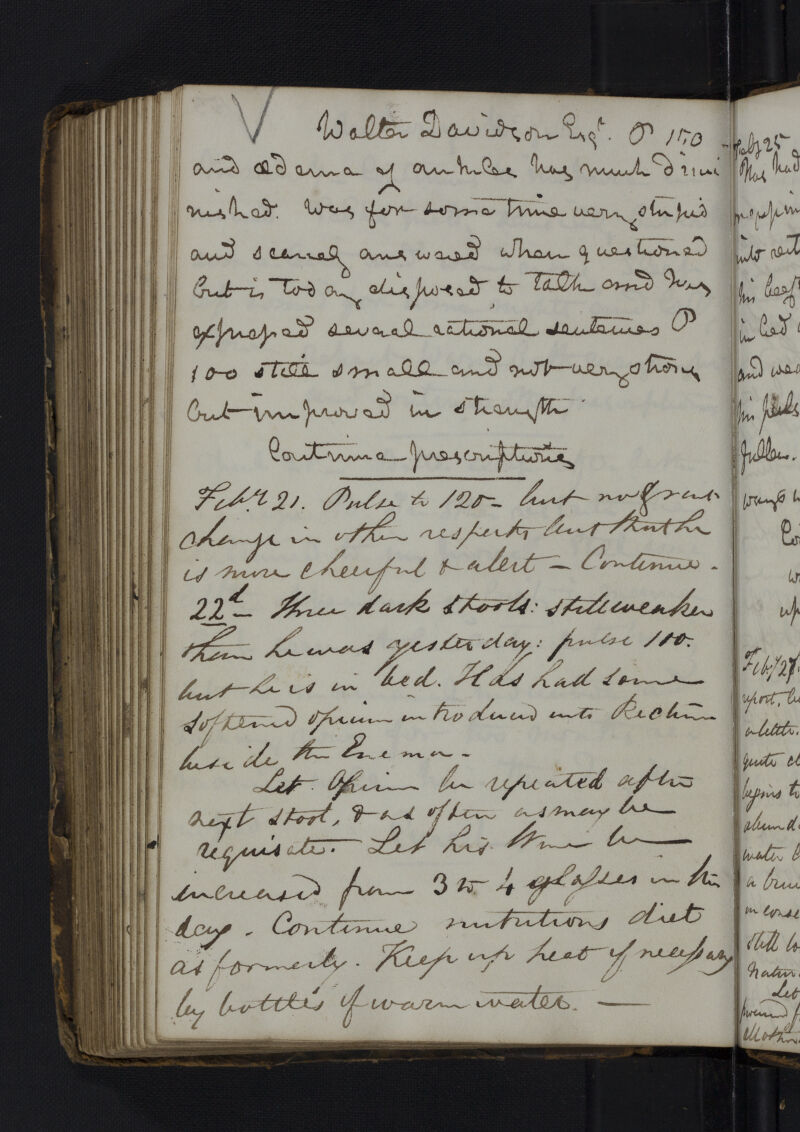 Walter Davidson Esqr. P 150
and œdema of ankles has much dimi
nished. Was for some time very stupid
and scarcely answered when questioned
but is today disposed to talk and has
expressed several rational sentences P
100 still small and not very strong
but improved in strength
Continue prescriptions
Feby 21. Pulse to 120 - but no great
change in other respects but that he
is more cheerful & alert - Continue -
22d - Three dark stools: still weaker
than he was yesterday: pulse 100.
but he is in bed. Has had some
softened opium introduced into Rectum
beside the Enema -
Let Opium be repeated after
next stool, & as often as may be
requisite. Let his Wine be
increased from 3 to 4 glasses in the
day. Continue nutritious diet
as formerly. Keep up heat if necessary
by bottles of warm water. —
Feby 25
Has had
into rect
his beef
in bed
and wea
his pulse
fuller.
Feby 27
report, he
a little.
quite
begins to
water
still
Let